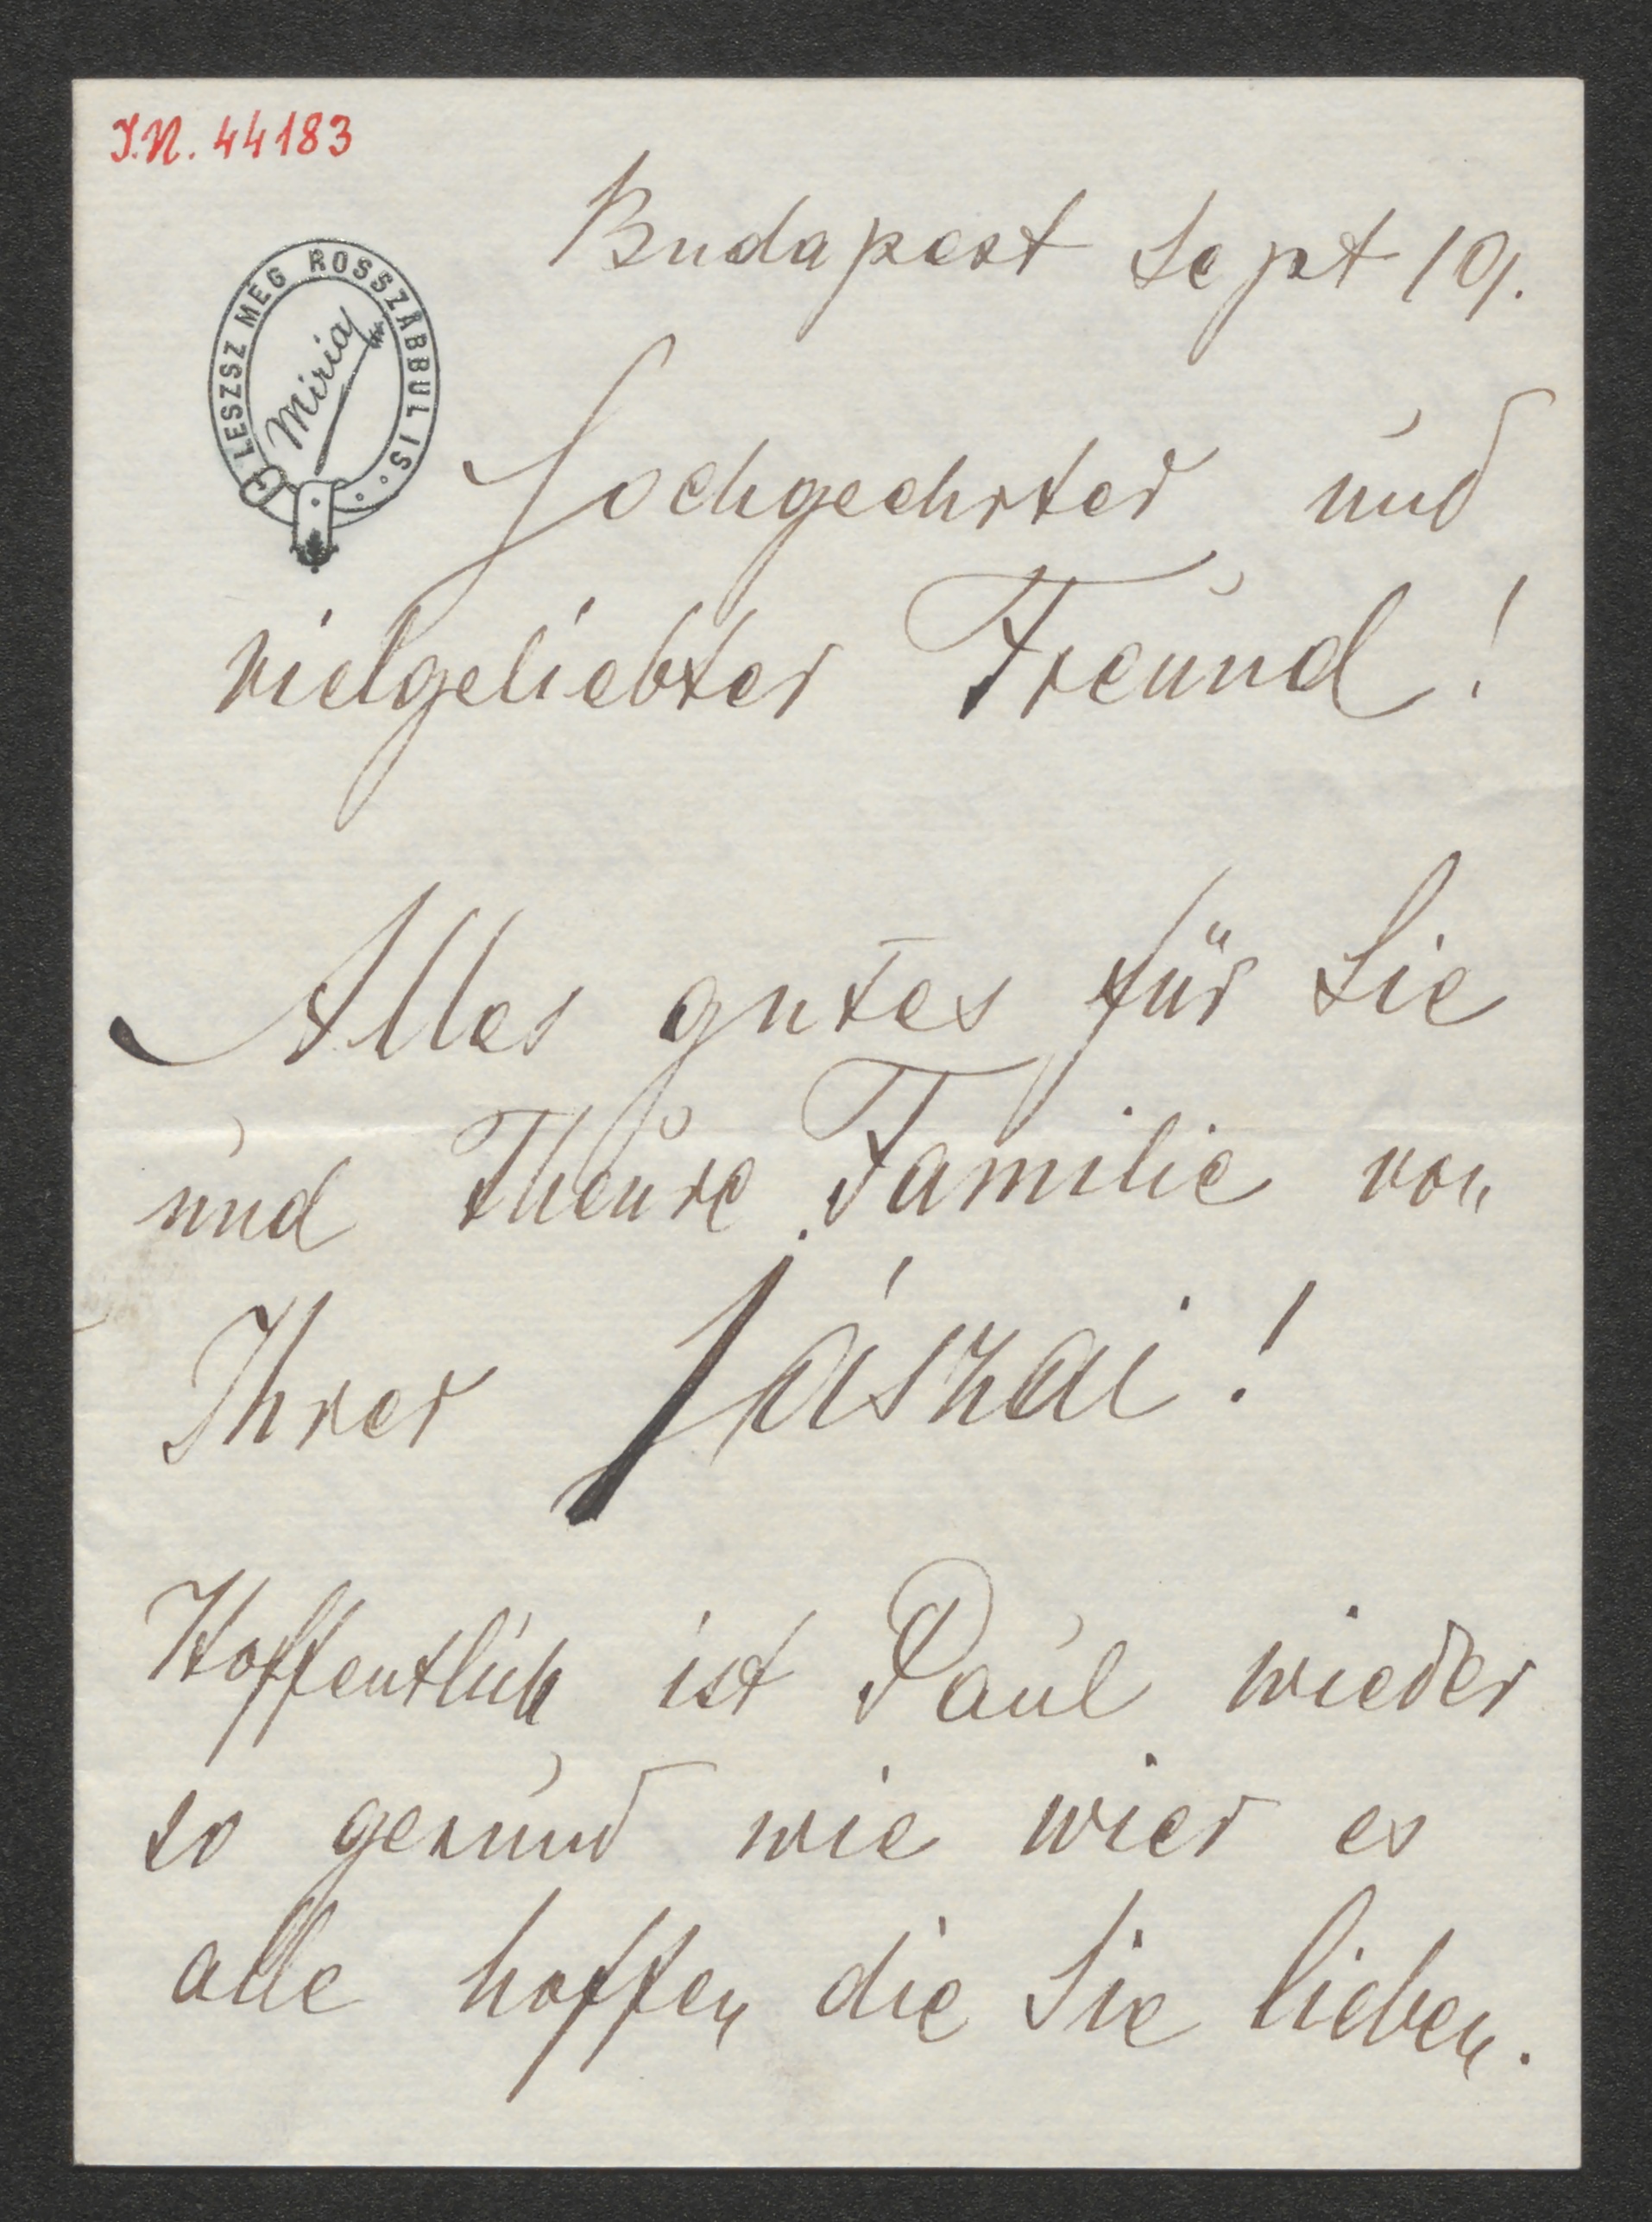 I.N. 44183
Budapest Sept 19.
LESZSZ MÉG ROSSZABBUL IS.
Miria
Hochgeehrter und
vielgeliebter Freund!
Alles gutes für Sie
und Theure Familie von
Ihrer Jászai!
Hoffentlich ist Paul wieder
so gesund wie wier es
alle hoffen die Sie lieben.